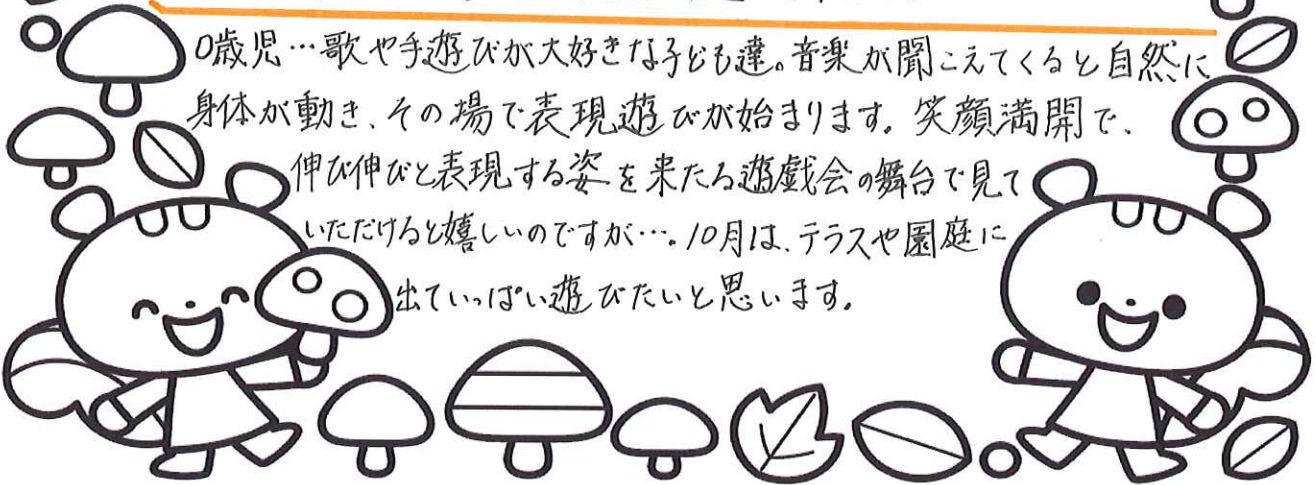 0歳児…歌や手遊びが大好きな子ども達。音楽が聞こえてくると自然に
身体が動き、その場で表現遊びが始まります。笑顔満開で、
伸び伸びと表現する姿を来たる遊戯会の舞台で見て
いただけると嬉しいのですが…。10月は、テラスや園庭に
出ていっぱい遊びたいと思います。